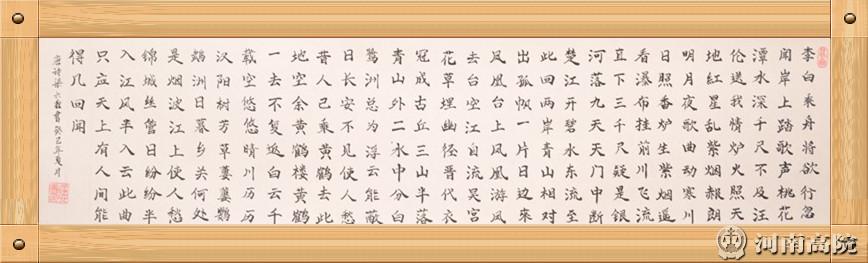 李白乘舟将欲行忽
闻岸上踏歌声桃花
潭水深千尺不及汪
伦送我情炉火照天
地红星乱紫烟赧朗
明月夜歌曲动寒川
日照香炉生紫烟遥
看瀑布挂前川飞流
直下三千尺疑是银
河落九天天门中断
楚江开碧水东流至
此回两岸青山相对
出孤帆一片日边来
凤凰台上凤凰游凤
去台空江自流吴宫
花草埋幽径晋代衣
冠成古丘三山半落
青山外二水中分白
鹭洲总为浮云能蔽
日长安不见使人愁
昔人已乘黄鹤去此
地空余黄鹤楼黄鹤
一去不复返白云千
载空悠悠晴川历历
汉阳树芳草萋萋鹦
鹉洲日暮乡关何处
是烟波江上使人愁
锦城丝管日纷纷半
入江风半入云此曲
只应天上有人间能
得几回闻
唐诗 书癸巳年夏月
河南高院